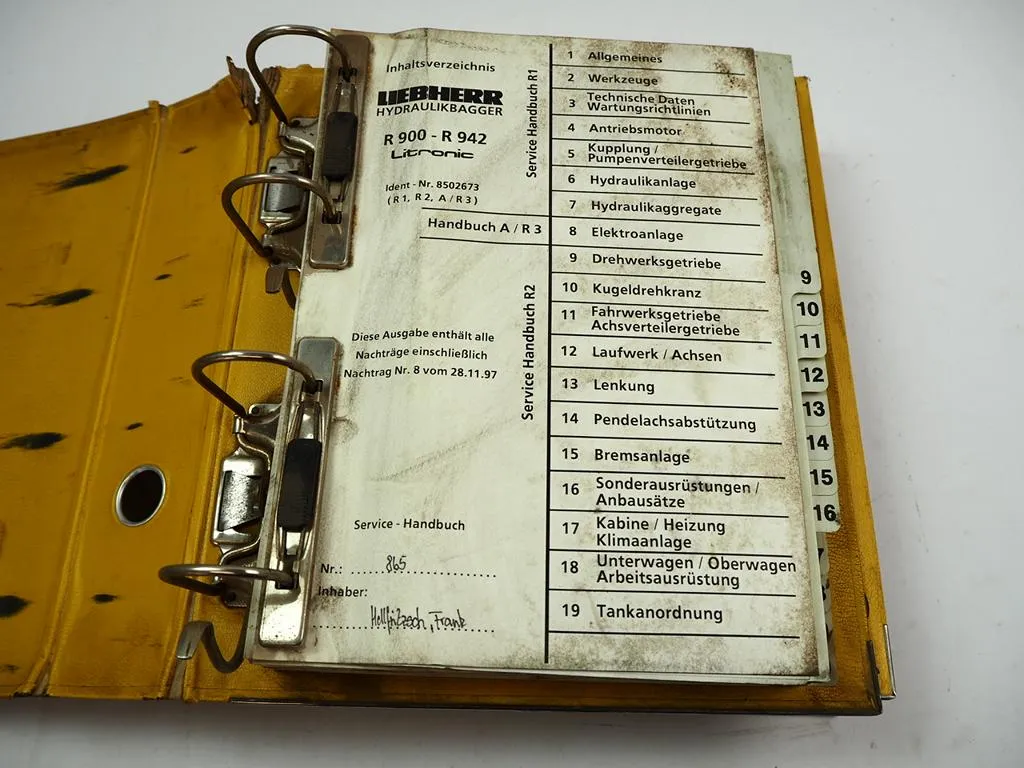 Inhaltsverzeichnis
LIEBHERR
HYDRAULIKBAGGER
R 900 - R 942
Litronic
Ident - Nr. 8502673
( R 1, R 2, A / R 3 )
Handbuch A / R 3
Diese Ausgabe enthält alle
Nachträge einschließlich
Nachtrag Nr. 8 vom 28.11.97
Service - Handbuch
Nr.: 865
Inhaber:
Frank
Service Handbuch R1
Service Handbuch R2
1 Allgemeines
2 Werkzeuge
3 Technische Daten
Wartungsrichtlinien
4 Antriebsmotor
5 Kupplung /
Pumpenverteilergetriebe
6 Hydraulikanlage
7 Hydraulikaggregate
8 Elektroanlage
9 Drehwerksgetriebe
10 Kugeldrehkranz
11 Fahrwerksgetriebe
Achsverteilergetriebe
12 Laufwerk / Achsen
13 Lenkung
14 Pendelachsabstützung
15 Bremsanlage
16 Sonderausrüstungen /
Anbausätze
17 Kabine / Heizung
Klimaanlage
18 Unterwagen / Oberwagen
Arbeitsausrüstung
19 Tankanordnung
9
10
11
12
13
14
15
16